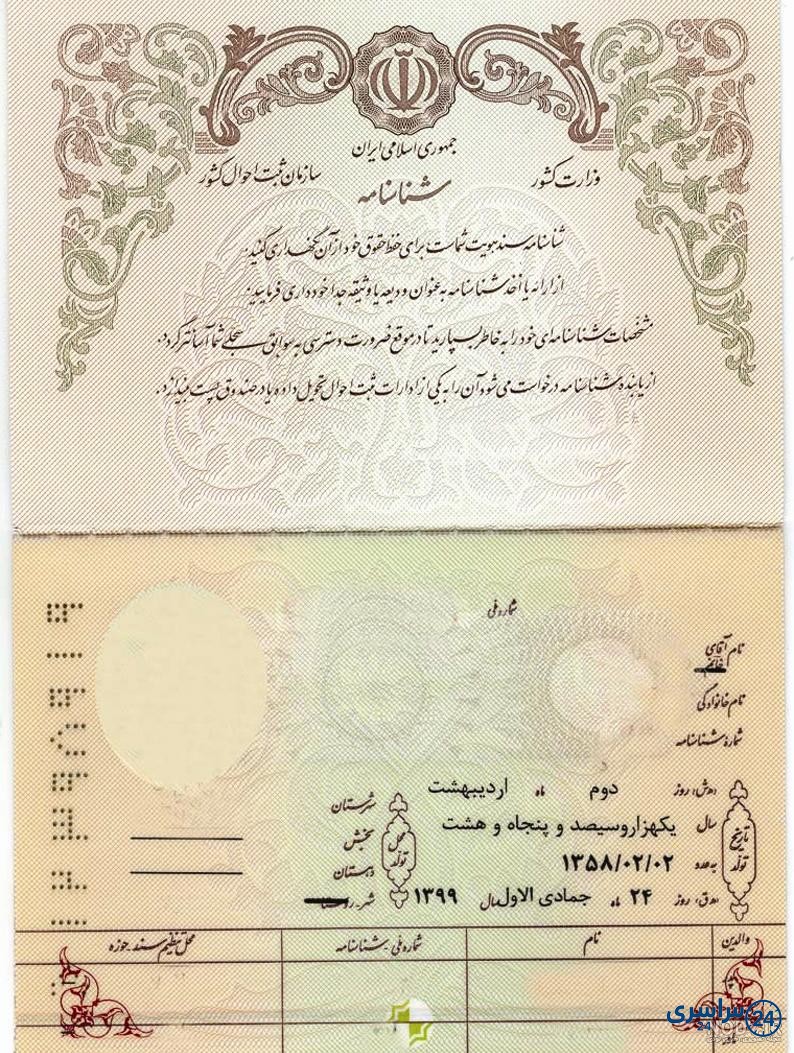 جمهوری اسلامی ایران
وزارت کشور
سازمان ثبت احوال کشور
شناسنامه
شناسنامه سند هویت شماست برای حفظ حقوق خود از آن نگهداری کنید.
از ارائه یا اخذ شناسنامه به عنوان ودیعه یا وثیقه جداً خودداری فرمایید.
مشخصات شناسنامه‌ای خود را به خاطر بسپارید تا در موقع ضرورت دسترسی به سوابق سجلی شما آسانتر گردد.
از یابنده شناسنامه درخواست می‌شود آن را به یکی از ادارات ثبت احوال تحویل داده یا در صندوق پست بیندازد.
شماره ملی
نام آقای
خانم
نام خانوادگی
شماره شناسنامه
تاریخ تولد
(ه.ش) روز دوم ماه اردیبهشت
سال یکهزاروسیصد و پنجاه و هشت
به عدد ۱۳۵۸/۰۲/۰۲
(ه.ق) روز ۲۴ ماه جمادی الاول سال ۱۳۹۹
محل تولد
شهرستان
بخش
دهستان
شهر
والدین
نام
شماره ملی - شناسنامه
محل تنظیم سند - حوزه
سراسری 24